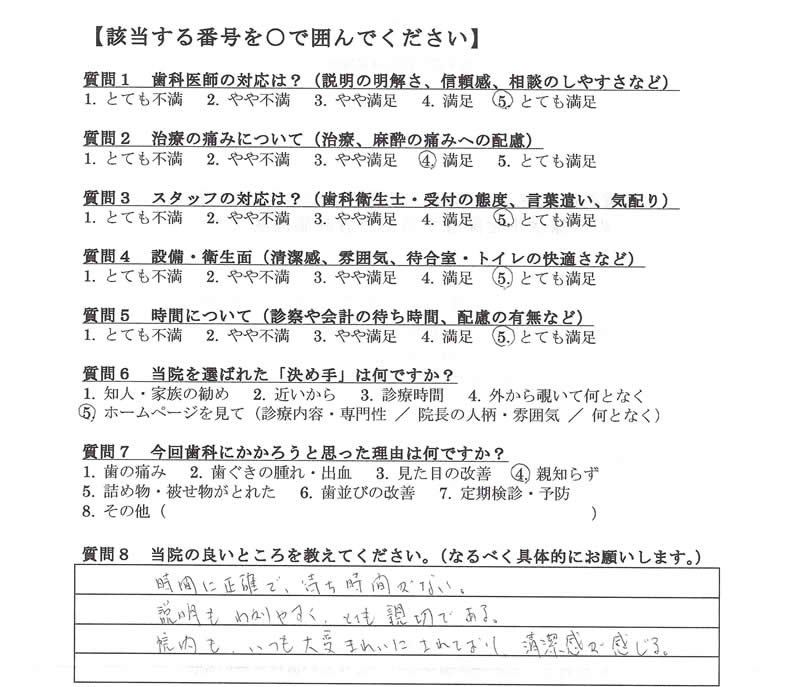 【該当する番号を○で囲んでください】
質問１　歯科医師の対応は？（説明の明解さ、信頼感、相談のしやすさなど）
1. とても不満　2. やや不満　3. やや満足　4. 満足　5. とても満足
質問２　治療の痛みについて（治療、麻酔の痛みへの配慮）
1. とても不満　2. やや不満　3. やや満足　4. 満足　5. とても満足
質問３　スタッフの対応は？（歯科衛生士・受付の態度、言葉遣い、気配り）
1. とても不満　2. やや不満　3. やや満足　4. 満足　5. とても満足
質問４　設備・衛生面（清潔感、雰囲気、待合室・トイレの快適さなど）
1. とても不満　2. やや不満　3. やや満足　4. 満足　5. とても満足
質問５　時間について（診察や会計の待ち時間、配慮の有無など）
1. とても不満　2. やや不満　3. やや満足　4. 満足　5. とても満足
質問６　当院を選ばれた「決め手」は何ですか？
1. 知人・家族の勧め　2. 近いから　3. 診療時間　4. 外から覗いて何となく
5. ホームページを見て（診療内容・専門性 ／ 院長の人柄・雰囲気 ／ 何となく）
質問７　今回歯科にかかろうと思った理由は何ですか？
1. 歯の痛み　2. 歯ぐきの腫れ・出血　3. 見た目の改善　4. 親知らず
5. 詰め物・被せ物がとれた　6. 歯並びの改善　7. 定期検診・予防
8. その他（　　　　　　　　　　）
質問８　当院の良いところを教えてください。（なるべく具体的にお願いします。）
時間に正確で、待ち時間がない。
説明もわかりやすく、とても親切である。
院内も、いつも大変きれいにされており、清潔感が感じる。